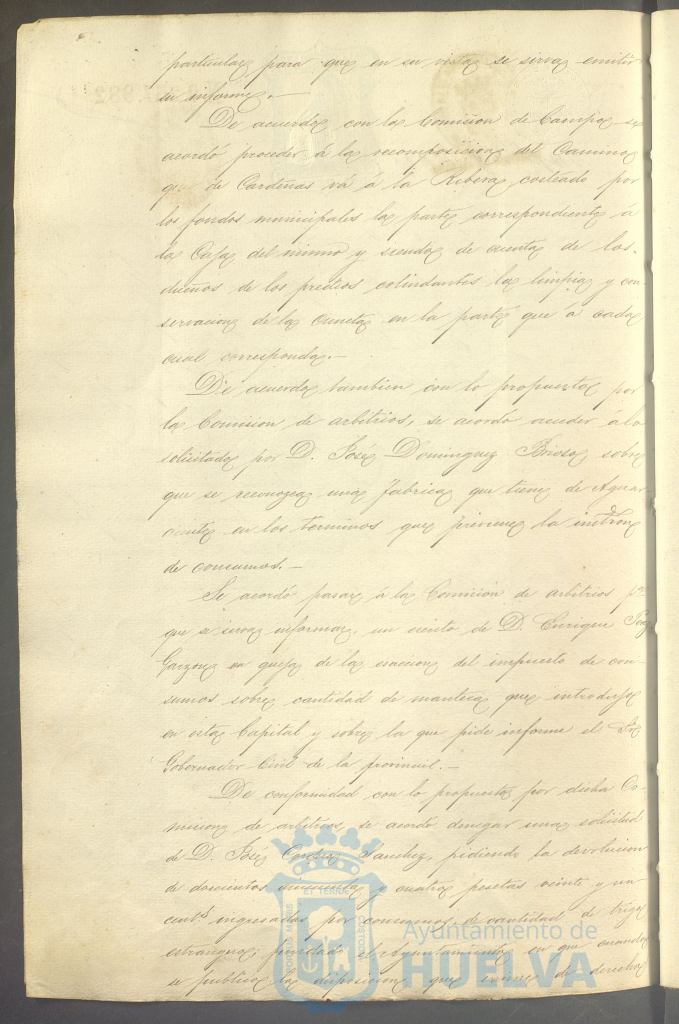 particular, para que en su vista se sirva emitir
su informe.—
De acuerdo con la Comision de Campo, se
acordó proceder á la recomposicion del Camino
que de Cardeñas vá á la Ribera, costeado por
los fondos municipales la parte correspondiente á
la Caja del mismo y siendo de cuenta de los
dueños de los predios colindantes la limpia y con-
servacion de la cuneta en la parte que á cada
cual corresponda.—
De acuerdo tambien con lo propuesto por
la Comision de arbitrios, se acordó acceder á lo
solicitado por D. José Dominguez sobre
que se reconozca una fabrica que tiene de Aguar
diente en los terminos que previene la instron
de consumos.—
Se acordó pasar á la Comision de arbitrios pa
que se sirva informar, un escrito de D. Enrique
Garzon en queja de la exaccion del impuesto de con-
sumos sobre cantidad de manteca que introdujo
en esta Capital y sobre la que pide informe el Sr
Gobernador Civil de la provincia.—
De conformidad con lo propuesto por dicha Co-
mision de arbitrios se acordó denegar una solicitud
de D. José Sanchez, pidiendo la devolucion
de doscientas cincuenta y cuatro pesetas veinte y un
cents ingresadas por consumos de cantidad de trigo
estrangero; el Ayuntamiento en que cuando
se publicó la disposicion que de derecho
Ayuntamiento de
HUELVA